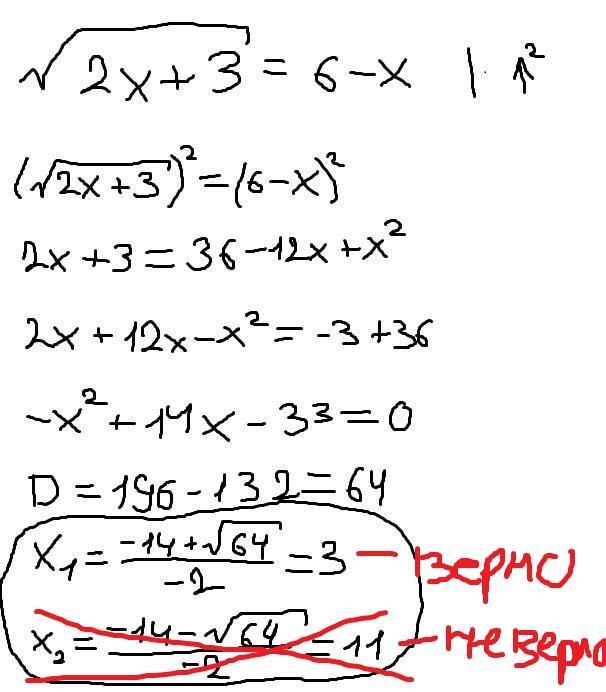 √(2x+3) = 6-x | ↑²
(√(2x+3))² = (6-x)²
2x+3 = 36-12x+x²
2x+12x-x² = -3+36
-x²+14x-33=0
D=196-132=64
x₁ = (-14+√64)/(-2) = 3 — верно
x₂ = (-14-√64)/(-2) = 11 — не верно